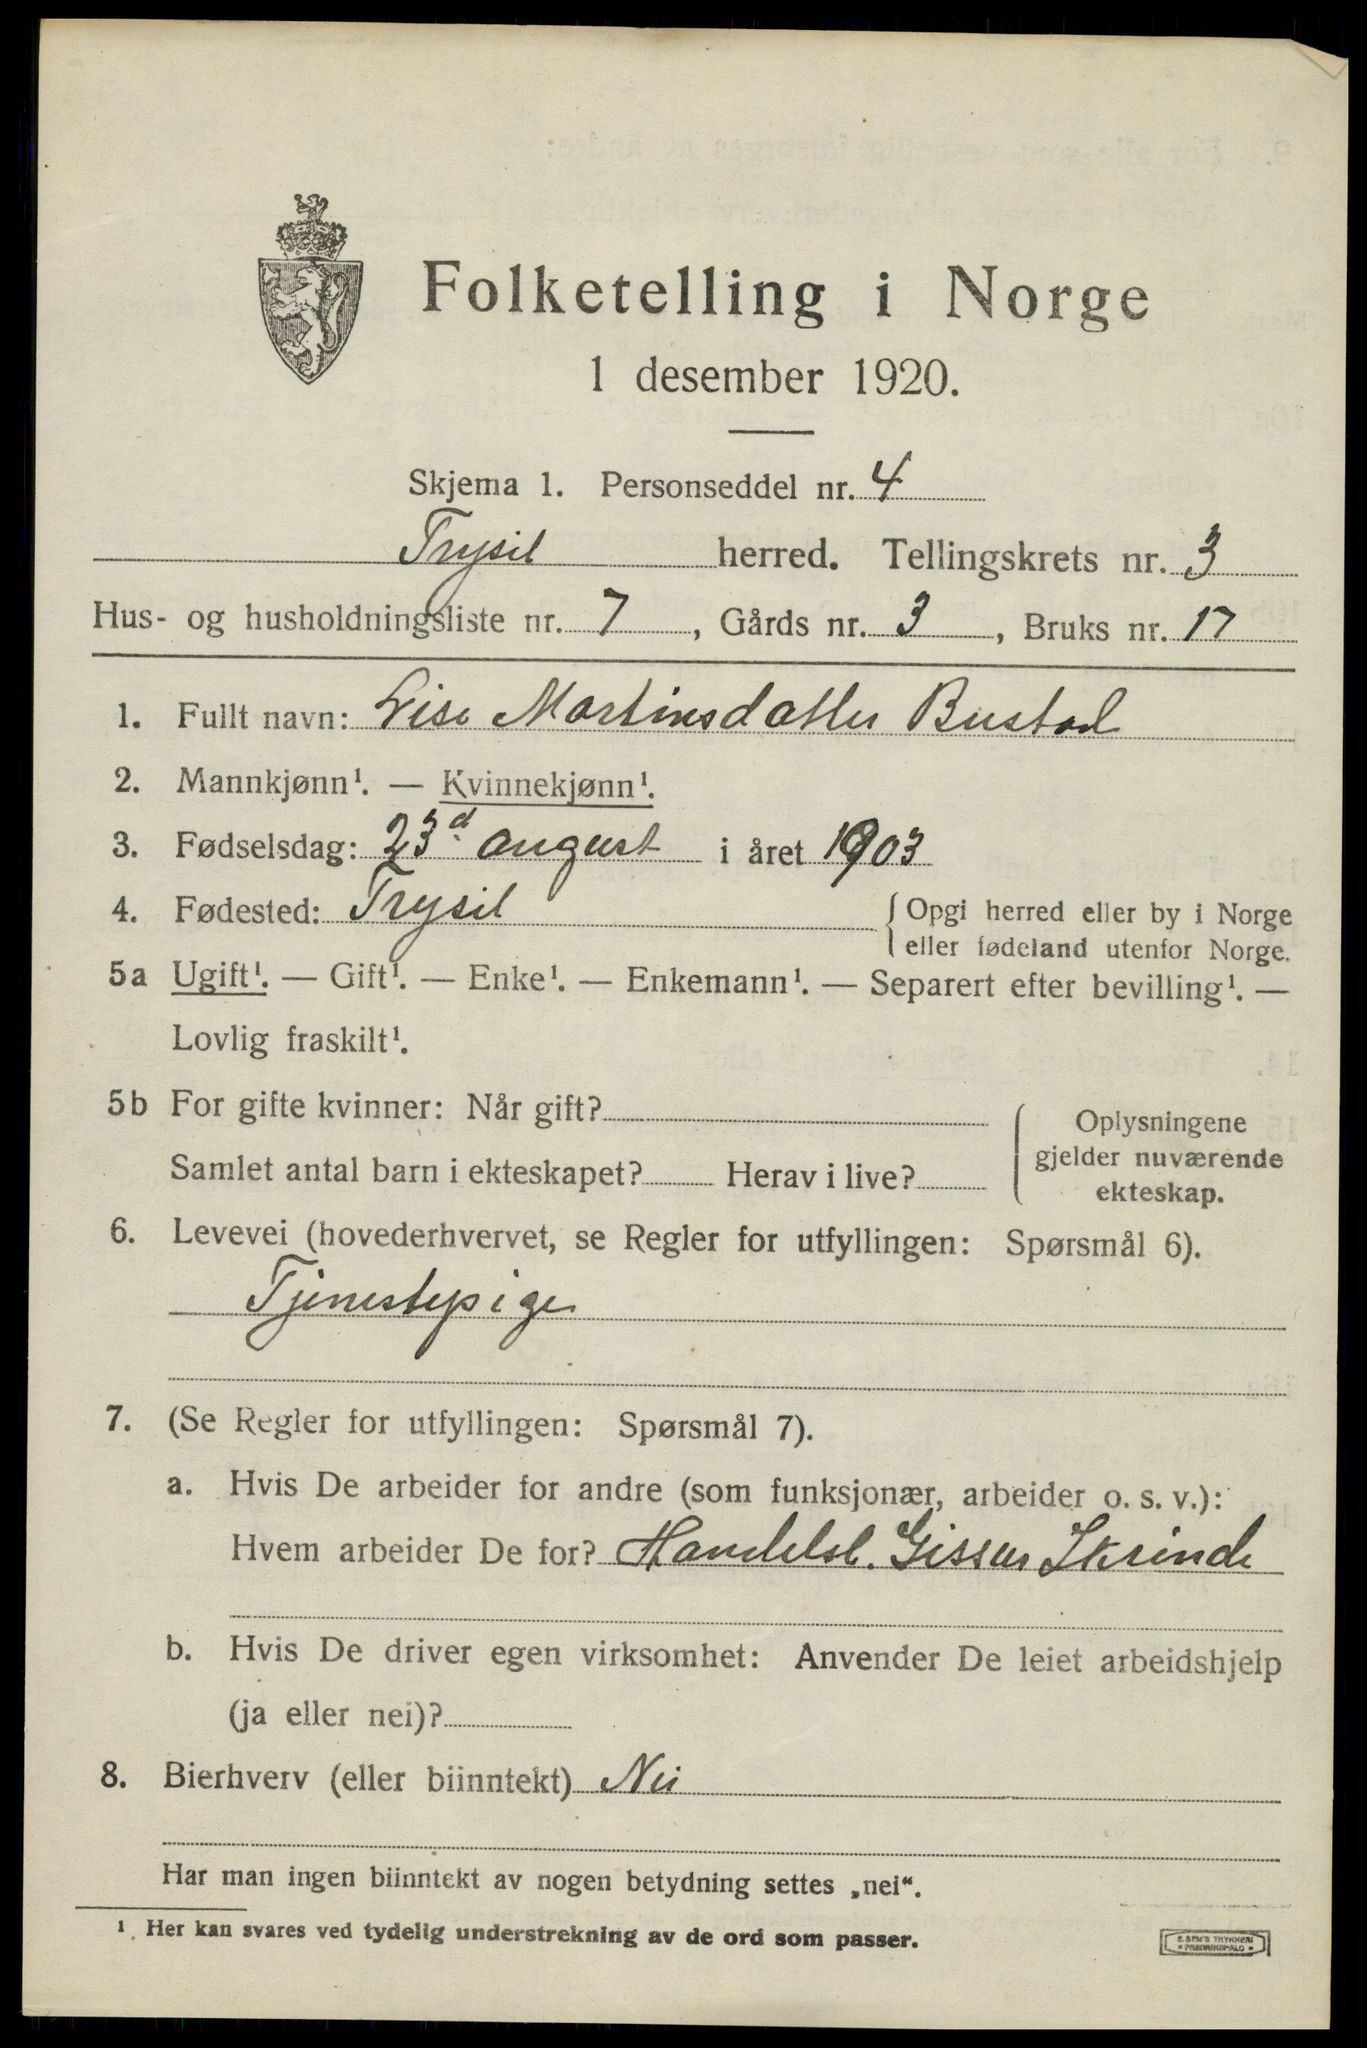 Folketelling i Norge
1 desember 1920.
Skjema 1. Personseddel nr. 4
Trysil herred. Tellingskrets nr. 3
Hus- og husholdningsliste nr. 7, Gårds nr. 3, Bruks nr. 17
1. Fullt navn: Lise Martinsdatter Bustad
2. Mannkjønn¹. — Kvinnekjønn¹.
3. Fødselsdag: 23d august i året 1903
4. Fødested: Trysil
Opgi herred eller by i Norge
eller fødeland utenfor Norge.
5a Ugift¹. — Gift¹. — Enke¹. — Enkemann¹. — Separert efter bevilling¹. —
Lovlig fraskilt¹.
5b For gifte kvinner: Når gift?
Samlet antal barn i ekteskapet? Herav i live?
Oplysningene
gjelder nuværende
ekteskap.
6. Levevei (hovederhvervet, se Regler for utfyllingen: Spørsmål 6).
Tjenestepige
7. (Se Regler for utfyllingen: Spørsmål 7).
a. Hvis De arbeider for andre (som funksjonær, arbeider o. s. v.):
Hvem arbeider De for? Handelsb. Gissur Skrinde
b. Hvis De driver egen virksomhet: Anvender De leiet arbeidshjelp
(ja eller nei)?
8. Bierhverv (eller biinntekt) Nei
Har man ingen biinntekt av nogen betydning settes „nei“.
¹ Her kan svares ved tydelig understrekning av de ord som passer.
E. SEM'S TRYKKERI
FREDRIKSHALD